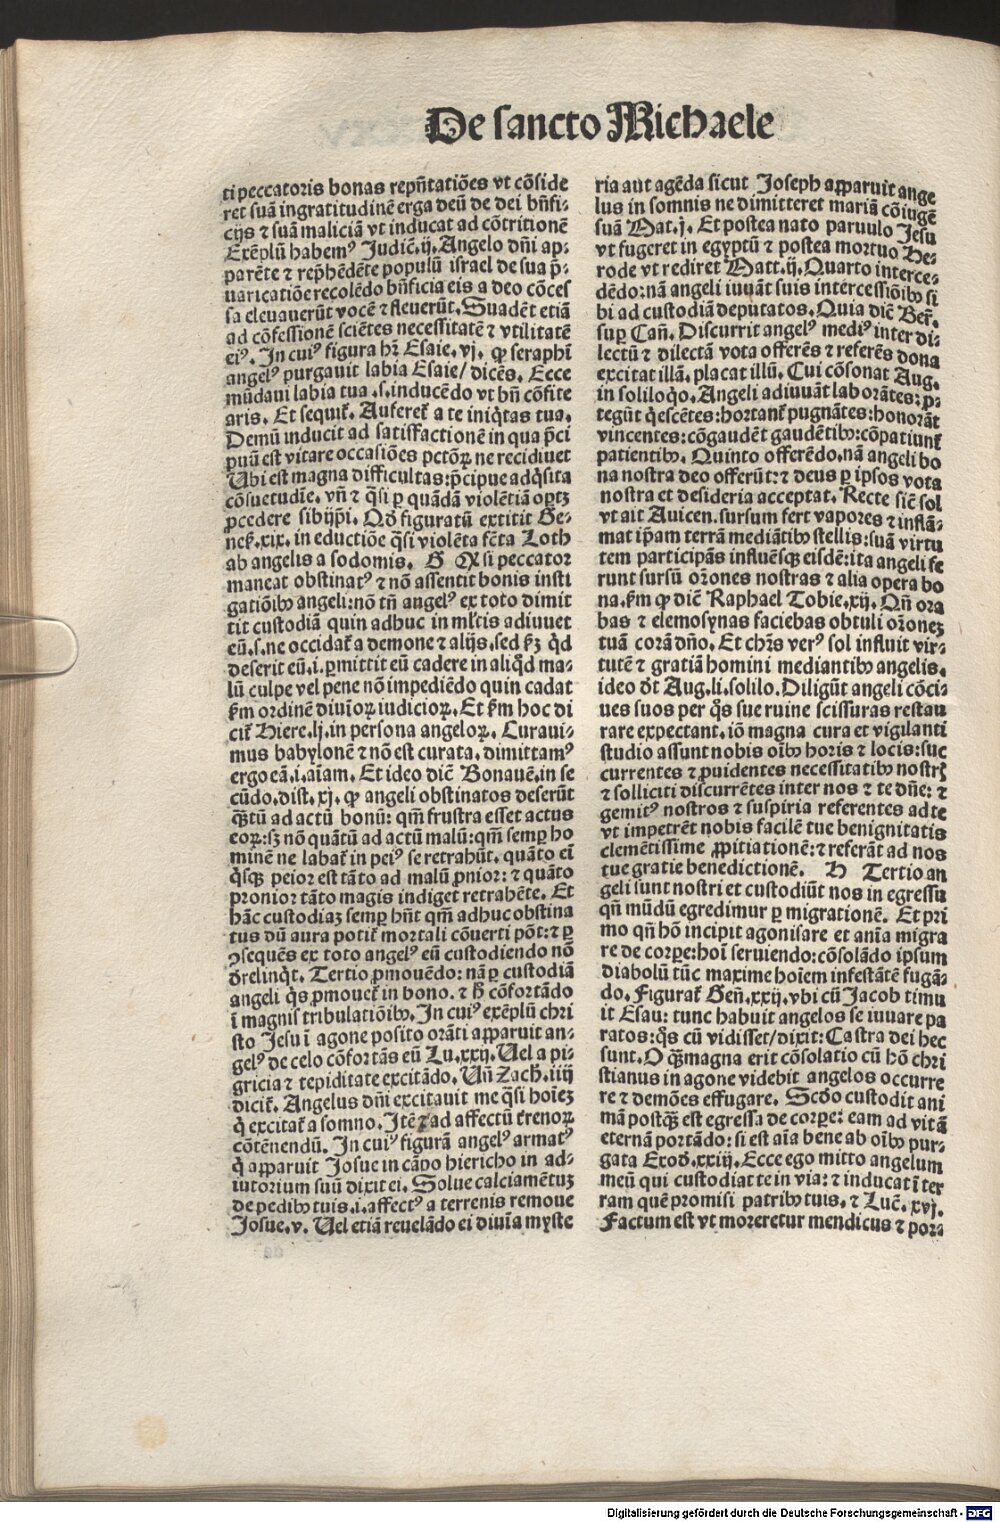 De sancto Michaele
ti peccatoris bonas repñtatiões vt cõside
ret suã ingratitudinẽ erga deũ de dei bñfi-
cijs ⁊ suã maliciã vt inducat ad cõtritionẽ
Exẽplũ habemꝰ Judiẽ.ij. Angelo dñi ap-
parẽte ⁊ rep̃hẽdẽte populũ israel de sua p̃-
uaricatiõe recolẽdo bñficia eis a deo cõces
sa eleuauerũt vocẽ ⁊ fleuerũt. Suadẽt etiã
ad cõfessionẽ sciẽtes necessitatẽ ⁊ vtilitatẽ
eiꝰ. In cuiꝰ figura hr̃ Esaie. vj. ꝙ seraphĩ
angelꝰ purgauit labia Esaie/ dicẽs. Ecce
mũdaui labia tua .s. inducẽdo vt bñ cõfite
aris. Et sequit᷑. Auferet᷑ a te iniq̃tas tua.
Demũ inducit ad satisfactionẽ in qua p̃ci
puũ est vitare occasiões pctõꝝ ne recidiuet
Ubi est magna difficultas: p̃cipue adq̃sita
cõsuetudĩe. vñ ⁊ q̃si ꝑ quãdã violẽtiã oportꝫ
ꝓcedere sibijp̃i. Qd̃ figuratũ extitit Ge-
neẽ. xix. in eductiõe q̃si violẽta fc̃ta Loth
ab angelis a sodomis. G Q̃ si peccator
maneat obstinatꝰ ⁊ nõ assentit bonis insti
gatiõibꝰ angeli: nõ tñ angelꝰ ex toto dimit
tit custodiã quin adhuc in ml̃tis adiuuet
eũ .s. ne occidat᷑ a demone ⁊ alijs, sed ẜm qd̃
deserit eũ .i. ꝑmittit eũ cadere in aliq̃d ma-
lũ culpe vel pene nõ impediẽdo quin cadat
ẜm ordinẽ diuĩoꝝ iudicioꝝ. Et ẜm hoc di
cit᷑ Hiere. lj. in persona angeloꝝ. Curaui-
mus babylonẽ ⁊ nõ est curata. dimittamꝰ
ergo eã .i. aĩam. Et ideo dic̃ Bonauẽ. in se
cũdo. dist. xj. ꝙ angeli obstinatos deserũt
q̃tũ ad actũ bonũ: qm̃ frustra esset actus
eoꝝ: sꝫ nõ quãtũ ad actũ malũ: qm̃ semꝑ ho
minẽ ne labat᷑ in peiꝰ se retrahũt. quãto eñ
q̃sqꝫ peior est tãto ad malũ ꝓnior: ⁊ quãto
pronior tãto magis indiget retrahẽte. Et
hãc custodiaꝫ semꝑ hñt qm̃ adhuc obstina
tus dũ aura potit᷑ mortali cõuerti põt: ⁊ ꝑ
ↄsequẽs ex toto angelꝰ eũ custodiendo nõ
derelinq̃t. Tertio ꝓmouẽdo: nã ꝑ custodiã
angeli q̃s ꝓmouet᷑ in bono. ⁊ h̃ cõfortãdo
ĩ magnis tribulatiõibꝰ. In cuiꝰ exẽplũ chri
sto Jesu ĩ agone posito orãti apparuit an-
gelꝰ de celo cõfortãs eũ Lu. xxij. Uel a pi-
gricia ⁊ tepiditate excitãdo. Uñ Zach. iiij
dicit᷑. Angelus dñi excitauit me q̃si hoĩeꝫ
q̃ excitat᷑ a somno. Itẽ ⁊ ad affectũ t᷑renoꝝ
cõtẽnendũ. In cuiꝰ figurã angelꝰ armatꝰ
q̃ apparuit Josue in cãpo hiericho in ad-
iutorium suũ dixit ei. Solue calciamẽtuꝫ
de pedibꝰ tuis .i. affectꝰ a terrenis remoue
Josue. v. Uel etiã reuelãdo ei diuĩa myste
ria aut agẽda sicut Joseph apparuit ange
lus in somnis ne dimitteret mariã cõiugẽ
suã Mat. j. Et postea nato paruulo Jesu
vt fugeret in egyptũ ⁊ postea mortuo He-
rode vt rediret Matt. ij. Quarto interce-
dẽdo: nã angeli iuuãt suis intercessiõibꝰ si
bi ad custodiã deputatos. Quia dic̃ Ber̃.
suꝑ Cañ. Discurrit angelꝰ mediꝰ inter di-
lectũ ⁊ dilectã vota offerẽs ⁊ referẽs dona
excitat illã. placat illũ. Cui cõsonat Aug.
in soliloqo. Angeli adiuuãt laborãtes: ꝓ-
tegũt q̃escẽtes: hortant᷑ pugnãtes: honorãt
vincentes: cõgaudẽt gaudẽtibꝰ: cõpatiunt᷑
patientibꝰ. Quinto offerẽdo. nã angeli bo
na nostra deo offerũt: ⁊ deus ꝑ ipsos vota
nostra et desideria acceptat. Recte sic̃ sol
vt ait Auicen. sursum fert vapores ⁊ inflã-
mat ip̃am terrã mediãtibꝰ stellis: suã virtu
tem participãs influẽsqꝫ eisdẽ: ita angeli fe
runt sursũ or̃ones nostras ⁊ alia opera bo
na. ẜm ꝙ dic̃ Raphael Tobie. xij. Qñ ora
bas ⁊ elemosynas faciebas obtuli or̃oneꝫ
tuã corã dño. Et chr̃s verꝰ sol influit vir-
tutẽ ⁊ gratiã homini mediantibꝰ angelis.
ideo dt̃ Aug. li. solilo. Diligũt angeli cõci-
ues suos per q̃s sue ruine scissuras restau
rare expectant. iõ magna cura et vigilanti
studio assunt nobis oĩbꝰ horis ⁊ locis: suc
currentes ⁊ ꝓuidentes necessitatibꝰ nostrꝭ
⁊ solliciti discurrẽtes inter nos ⁊ te dñe: ⁊
gemitꝰ nostros ⁊ suspiria referentes ad te
vt impetrẽt nobis facilẽ tue benignitatis
clemẽtissime ꝓpitiationẽ: ⁊ referãt ad nos
tue gratie benedictionẽ. H Tertio an
geli sunt nostri et custodiũt nos in egressu
qñ mũdũ egredimur ꝑ migrationẽ. Et pri
mo qñ hõ incipit agonisare et anĩa migra
re de corpe: hoĩ seruiendo: cõsolãdo ipsum
diabolũ tũc maxime hoĩem infestãtẽ fugã-
do. Figurat᷑ Geñ. xxij. vbi cũ Jacob timu
it Esau: tunc habuit angelos se iuuare pa
ratos: q̃s cũ vidisset/ dixit: Castra dei hec
sunt. O q̃ꝫ magna erit cõsolatio cũ hõ chri
stianus in agone videbit angelos occurre
re ⁊ demões effugare. Scd̃o custodit ani
mã postqꝫ est egressa de corpe: eam ad vitã
eternã portãdo: si est aĩa bene ab oĩbꝰ pur-
gata Exod. xxiij. Ecce ego mitto angelum
meũ qui custodiat te in via: ⁊ inducat ĩ ter
ram quẽ promisi patribꝰ tuis. ⁊ Luc̃. xvj.
Factum est vt moreretur mendicus ⁊ por-
Digitalisierung gefördert durch die Deutsche Forschungsgemeinschaft - DFG